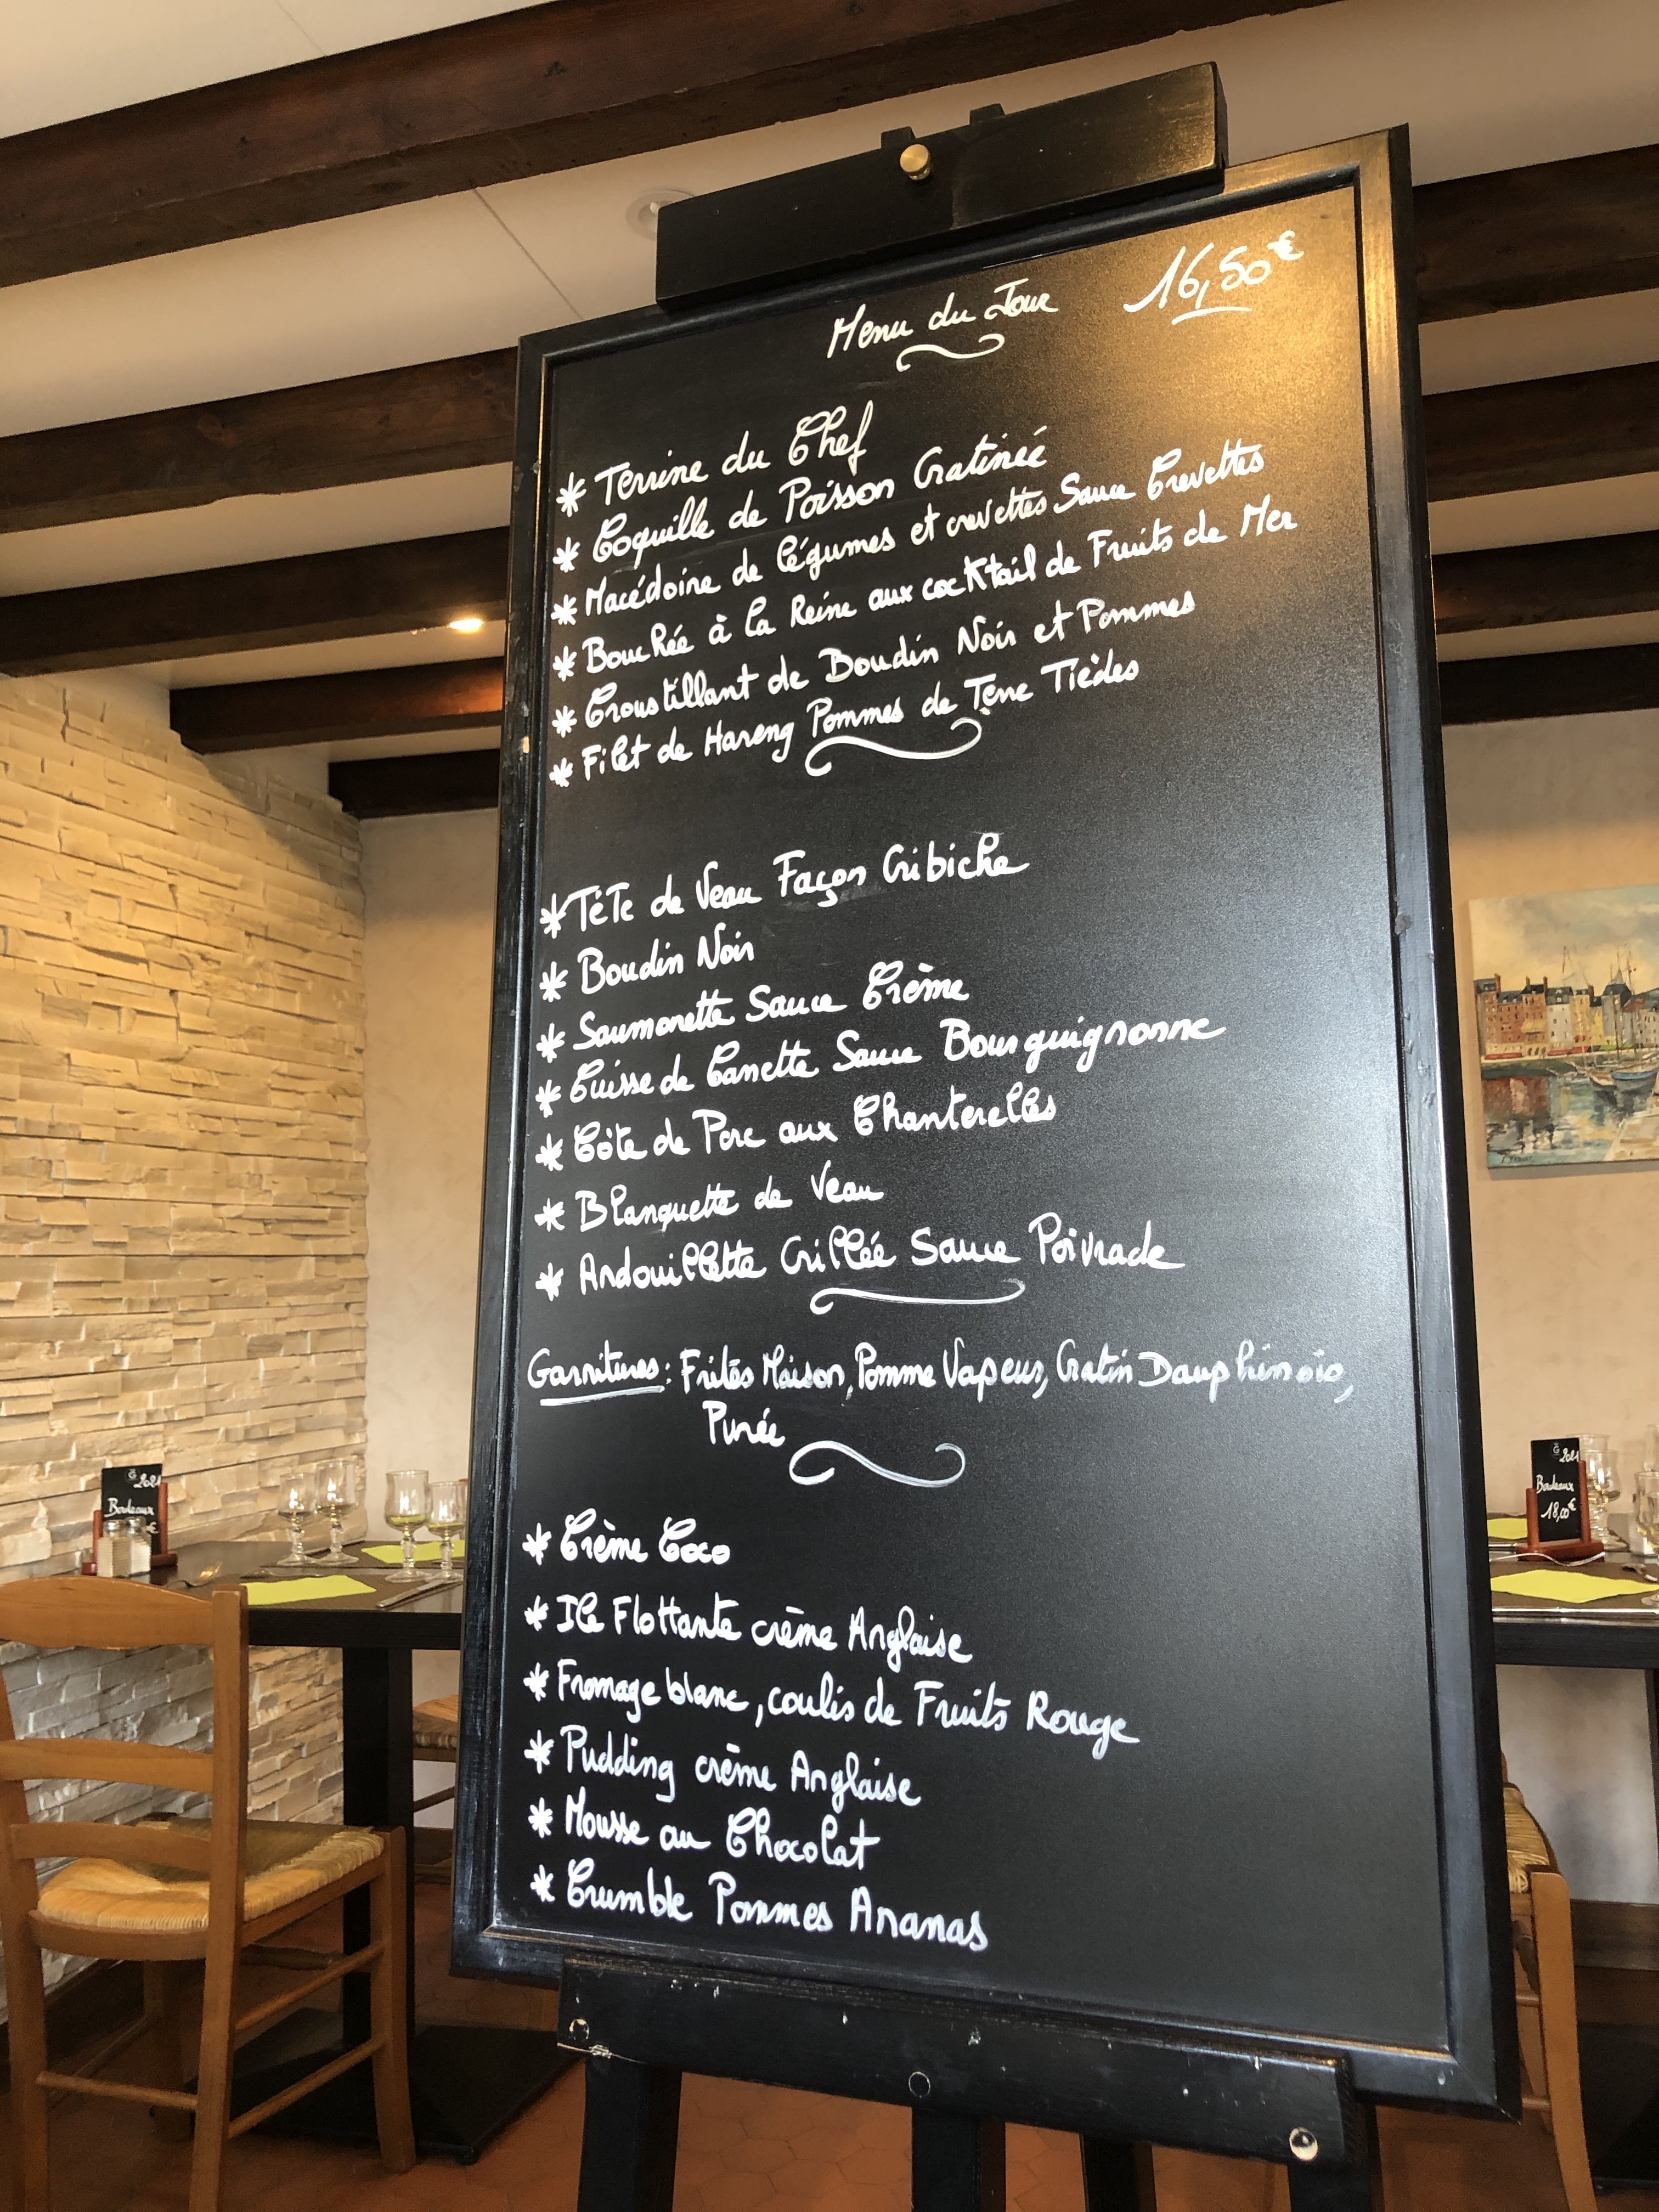 Menu du Jour 16,50€
* Terrine du Chef
* Coquille de Poisson Gratinée
* Macédoine de légumes et crevettes Sauce Crevettes
* Bouchée à la Reine aux cocktail de Fruits de Mer
* Croustillant de Boudin Noir et Pommes
* Filet de Hareng Pommes de Terre Tièdes
* Tête de Veau Façon Gribiche
* Boudin Noir
* Saumonette Sauce Crème
* Cuisse de Canette Sauce Bourguignonne
* Côte de Porc aux Chanterelles
* Blanquette de Veau
* Andouillette Grillée Sauce Poivrade
Garnitures : Frites Maison, Pomme Vapeur, Gratin Dauphinois,
Purée
* Crème Coco
* Ile Flottante crème Anglaise
* Fromage blanc, coulis de Fruits Rouge
* Pudding crème Anglaise
* Mousse au Chocolat
* Crumble Pommes Ananas
2021
Bordeaux
€
2021
Bordeaux
18,00€